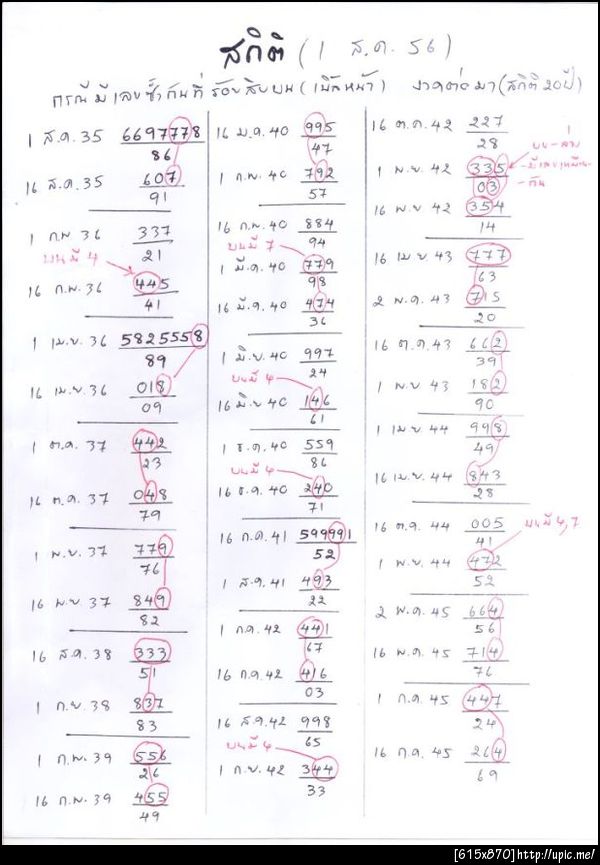 สถิติ (1 ส.ค. 56)
กรณีมีเลขซ้ำกันที่ร้อยสิบบน (เบิ้ลหน้า) งวดต่อมา (สถิติ 20 ปี)
1 ส.ค. 35 6697778
86
16 ส.ค. 35 607
91
1 ก.พ. 36 337
21
บนมี 4
16 ก.พ. 36 445
41
1 เม.ย. 36 5825558
89
16 เม.ย. 36 018
09
1 ต.ค. 37 442
23
16 ต.ค. 37 048
79
1 พ.ย. 37 779
76
16 พ.ย. 37 849
82
16 ส.ค. 38 333
51
1 ก.ย. 38 837
83
1 ก.พ. 39 556
26
16 ก.พ. 39 455
49
16 ม.ค. 40 995
47
1 ก.พ. 40 792
57
16 ก.พ. 40 884
94
บนมี 7
1 มี.ค. 40 779
98
16 มี.ค. 40 474
36
1 มิ.ย. 40 997
24
บนมี 4
16 มิ.ย. 40 146
61
1 ธ.ค. 40 559
86
บนมี 4
16 ธ.ค. 40 240
71
16 ก.ค. 41 599991
52
1 ส.ค. 41 493
22
1 ก.ค. 42 441
67
16 ก.ค. 42 416
03
16 ส.ค. 42 998
65
บนมี 4
1 ก.ย. 42 344
33
16 ต.ค. 42 227
28
บน-ล่าง
1 พ.ย. 42 335
-มีเลขเหมือน
03
-กัน
16 พ.ย. 42 354
14
16 เม.ย. 43 777
63
2 พ.ค. 43 715
20
16 ต.ค. 43 662
39
1 พ.ย. 43 182
90
1 เม.ย. 44 998
49
16 เม.ย. 44 843
28
16 ต.ค. 44 005
41
บนมี 4,7
1 พ.ย. 44 472
52
2 พ.ค. 45 664
56
16 พ.ค. 45 714
76
1 ก.ค. 45 447
24
16 ก.ค. 45 264
69
[615x870]http://upic.me/